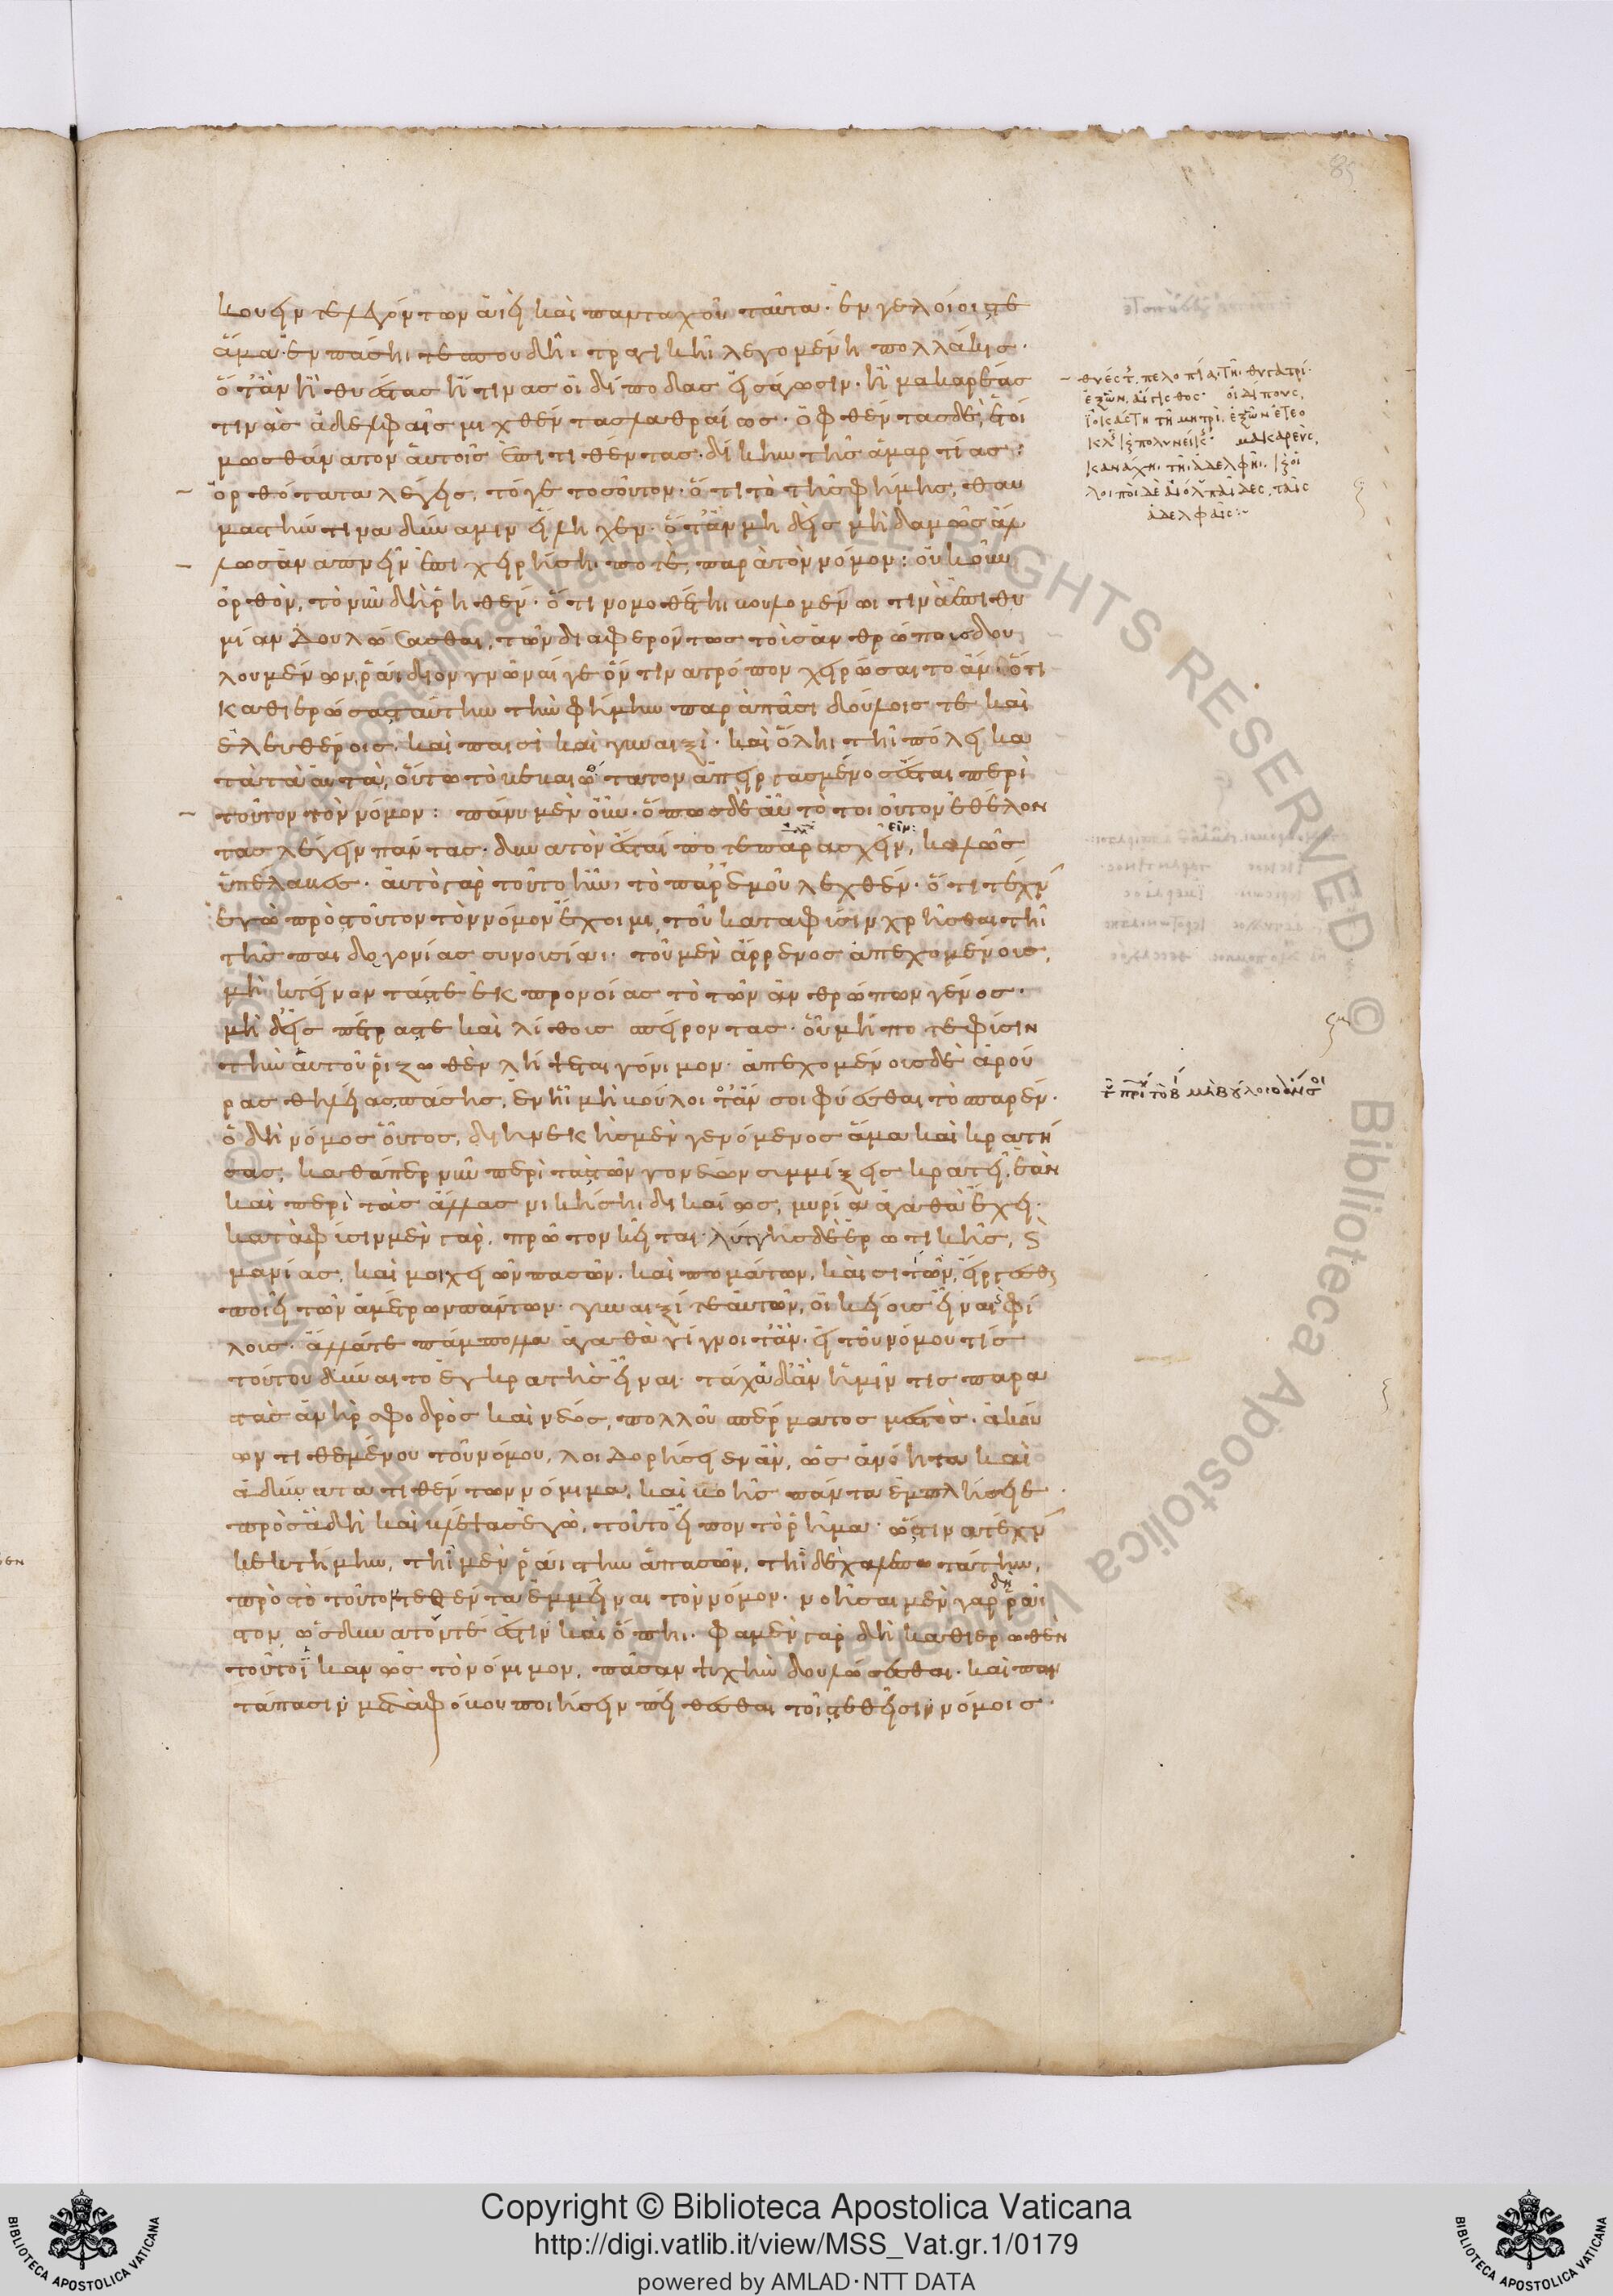 κούειν τε λεγόντων ἀεὶ καὶ πανταχοῦ ταῦτα· ἐν γελοίοις τε
ἅμα· ἐν πάσηι τε σπουδῆι τραγικῆι λεγομένηι πολλάκις·
ὅτ' ἂν ἢ θυέστας ἤ τινας οἰδίποδας εἰσάγωσιν· ἢ μακαρέας
τινὰς ἀδελφαῖς μιχθέντας λαθραίως· ὀφθέντας δὲ, ἑτοί
μως θάνατον αὑτοῖς ἐπιτιθέντας· δίκην τῆς ἁμαρτίας:
ὀρθότατα λέγεις, τό γε τοσοῦτον· ὅτι τὸ τῆς φήμης, θαυ
μαστήν τινα δύναμιν εἴληχεν· ὅτ' ἂν μηδεὶς μηδαμῶς ἄλ
λως ἀναπνεῖν ἐπιχειρήσηι ποτὲ, παρὰ τὸν νόμον: οὐκοῦν
ὀρθὸν, τὸ νῦν δὴ ῥηθέν· ὅτι νομοθέτηι βουλομένωι τινὰ ἐπιθυ
μίαν δουλώσασθαι, τῶν διαφερόντως τοὺς ἀνθρώπους δου
λουμένων, ῥάιδιον γνῶναί γε ὅντινα τρόπον χειρώσαιτο ἄν· ὅτι
καθιερώσας ταύτην τὴν φήμην παρὰ πᾶσι δούλοις τὲ καὶ
ἐλευθέροις· καὶ παισὶ καὶ γυναιξὶ· καὶ ὅληι τῆι πόλει κα
τὰ τὰ αὐτὰ, οὕτω τὸ βεβαιότατον ἀπειργασμένος ἔσται περὶ
τοῦτον τὸν νόμον: πάνυ μὲν οὖν· ὅπως δὲ αὖ τὸ τοιοῦτον ἐθέλον
τας λέγειν πάντας· δυνατὸν ἔσται ποτε παρασχεῖν; καλῶς
ὑπέλαβες· αὐτὸ γὰρ τοῦτο ἦν, τὸ παρ' ἐμοῦ λεχθέν· ὅτι τέχνην
ἐγὼ πρὸς τοῦτον τὸν νόμον ἔχοιμι, τοῦ κατὰ φύσιν χρῆσθαι τῆι
τῆς παιδογονίας συνουσίαι· τοῦ μὲν ἄρρενος ἀπεχομένους,
μὴ κτείνοντάς τε ἐκ προνοίας τὸ τῶν ἀνθρώπων γένος·
μηδ' εἰς πέτρας τε καὶ λίθους σπείροντας· οὗ μήποτε φύσιν
τὴν αὑτοῦ ῥιζωθὲν λήψεται γόνιμον· ἀπεχομένους δὲ ἀρού
ρας θηλείας πάσης, ἐν ἧι μὴ βούλοιο ἄν σοι φύεσθαι τὸ σπαρέν·
ὁ δὴ νόμος οὗτος, διηνεκὴς μὲν γενόμενος ἅμα καὶ κρατή
σας, καθάπερ νῦν περὶ τὰς τῶν γονέων συμμίξεις κρατεῖ, ἐὰν
καὶ περὶ τὰς ἄλλας νικήσηι δικαίως, μυρία ἀγαθὰ ἔχει·
κατὰ φύσιν μὲν γὰρ, πρῶτον κεῖται· λύττης δὲ ἐρωτικῆς, καὶ
μανίας, καὶ μοιχειῶν πασῶν· καὶ πομάτων, καὶ σιτίων, εἴργεσθαι
ποιεῖ τῶν ἀμέτρων πάντων· γυναιξί τε αὑτῶν, οἰκείους εἶναι φί
λους· ἄλλά τε πάμπολλα ἀγαθὰ γίγνοιτ' ἂν· εἰ τοῦ νόμου τίς
τούτου δύναιτο ἐγκρατὴς εἶναι· τάχα δ' ἂν ἡμῖν τις παρα
στὰς ἀνὴρ σφοδρὸς καὶ νέος, πολλοῦ σπέρματος μεστὸς· ἀκού
ων τιθεμένου τοῦ νόμου, λοιδορήσειεν ἂν, ὡς ἀνόητα καὶ
ἀδύνατα τιθέντων νόμιμα, καὶ βοῆς πάντα ἐμπλήσειε·
πρὸς ἃ δὴ καὶ βλέψας ἐγὼ, τοῦτο εἶπον τὸ ῥῆμα· ὥς τινα τέχνην
κεκτήμην, τῆι μὲν ῥάιστην ἁπασῶν, τῆι δὲ χαλεπωτάτην,
πρὸς τὸ τοῦτον τεθέντα ἐμμεῖναι τὸν νόμον· νοῆσαι μὲν γὰρ δὴ ῥᾶι
στον, ὡς δυνατόν τέ ἐστιν καὶ ὅπηι· φαμὲν γὰρ δὴ καθιερωθὲν
τοῦτο ἱκανῶς τὸ νόμιμον, πᾶσαν ψυχὴν δουλώσεσθαι· καὶ παν
τάπασιν μετὰ φόβου ποιήσειν πείθεσθαι τοῖς τεθεῖσιν νόμοις·
θυέστης, πελοπίαι τῆι θυγατρί·
ἐξ ὧν, αἴγισθος· οἰδίπους,
ἰοκάστηι τῆι μητρὶ, ἐξ ὧν ἐτεο
κλῆς καὶ πολυνείκης· μακαρεὺς,
κανάχηι τῆι ἀδελφῆι· καὶ οἱ
λοιποὶ δὲ αἰόλου παῖδες, ταῖς
ἀδελφαῖς:~
Copyright © Biblioteca Apostolica Vaticana
http://digi.vatlib.it/view/MSS_Vat.gr.1/0179
powered by AMLAD·NTT DATA
BIBLIOTECA APOSTOLICA VATICANA
BIBLIOTECA APOSTOLICA VATICANA